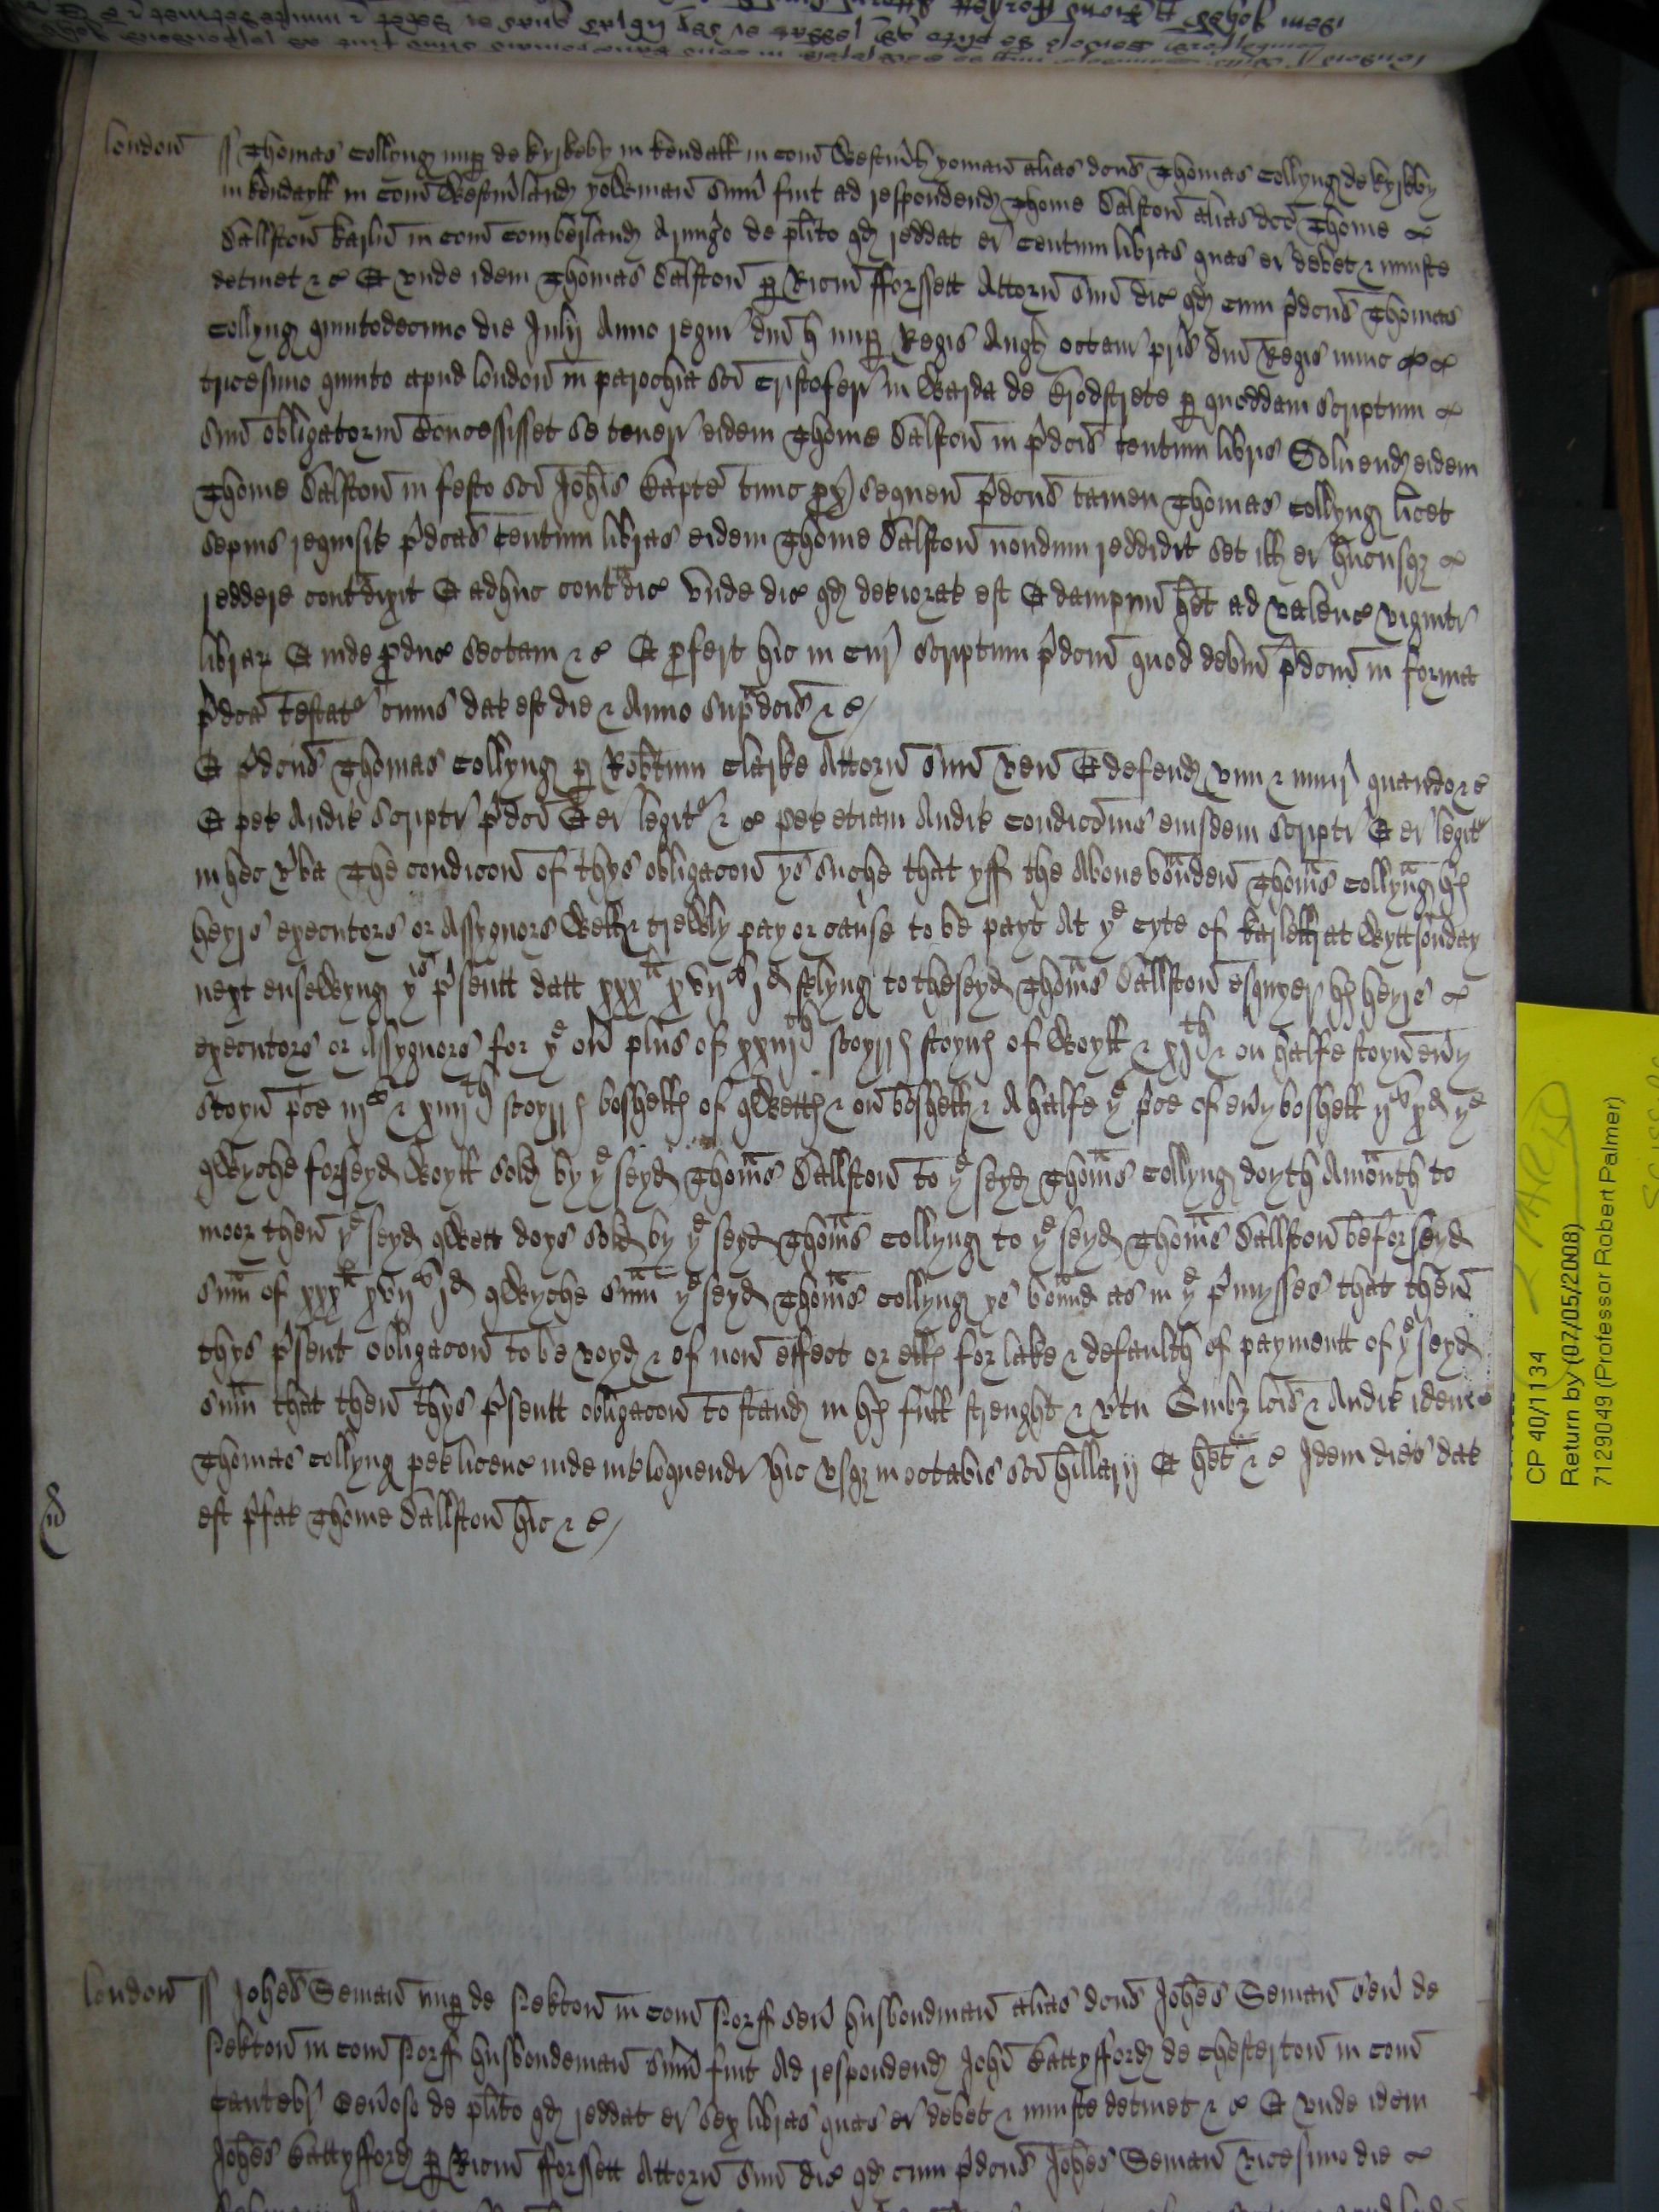 london ss Thomas Collyng nup de kyrkeby in kendall in com Westmlד yoman alias dcus Thomas Collyng de kyrkby
in kendayll in com Westmland yokman sum fuit ad respondend Thome Dalston alias dco Thome
Dallston karlin in com Comberland Armigo de plito qd reddat ei centum libras quas ei debet & iniuste
detinet &c Et unde idem Thomas Dalston p Ricm fforssett Attorn suu dic qd cum pdcus Thomas
Collyng quintodecimo die Julij Anno regni dni h nup Regis Angl octavi pris dni Regis nunc
tricesimo quinto apud london in parochia sci Cristoferi in Warda de Brodstrete p quoddam scriptum
suu obligatoriu concessisset se teneri eidem Thome Dalston in pdcis centum libris Solvend eidem
Thome Dalston in festo sci Johis Bapte tunc px sequen pdcus tamen Thomas Collyng licet
sepius requisit pdcas centum libras eidem Thome Dalston nondum reddidit set ill ei hucusq
reddere contdixit Et adhuc contdic unde dic qd deteriorat est Et dampnu het ad valenc viginti
librar Et inde pduc sectam &c Et pfert hic in cur scriptum pdcm quod debm pdcm in forma
pdca testat cuius dat est die & Anno supdcis &c
Et pdcus Thomas Collyng p Robtum Clarke Attorn suu ven Et defend vim & iniur quando &c
Et pet Audit scripti pdci Et ei legit &c pet etiam Audit condicionis eiusdem scripti Et ei legit
in hec vba The condicon of thys obligacon ys suche that yff the Abovebounden Thoms Collyng hs
heyrs executors or Assygnors Well & trewly pay or cause to be payt At ye cyte of karlell at Wyttsonday
next ensewyng ys psentt datt xxxli xvijs jd stlyng to theseyd Thoms Dallston esquyer hs heyrs
executors or Assygnors for ye on plus of xxiijth scoyrs stoyns of Woyll & xjth & on halfe stoyn evy
stoyn pce iijs & xiiijth scoyrs boshells of qWett & on boshell & A halfe ye pce of evy boshell ijs xd ye
qWyche forseyd Woyll sold by ye seyd Thoms Dallston to ye seyd Thoms Collyng doyth Amonth to
moor then ye seyd qWett doys sold by ye seyd Thoms Collyng to ye seyd Thoms Dallston beforseyd
sum of xxxli xvijs jd qWyche sum ye seyd Thoms Collyng ys bound as in ye pmysses that then
thys psent obligacon to be voyd & of non effect or ells for lake & defaulth of paymentt of ye seyd
sum that then thys psentt obligacon to stand in hs full strenght & vtu Quibz lcis & Audit idem
Thomas Collyng pet licenc inde intloquendi hic usq in octabis sci hillarij Et het &c Idem dies dat
est pfat Thome Dallston hic &c
london ss Johes Seman nup de Nekton in com Norff sen husbondman alias dcus Johes Seman sen de
Nekton in com Norff husbondeman sum fuit Ad respondend Johi Battyfford de Chesterton in com
Cantebr Genoso de plito qd reddat ei sex libras quas ei debet & iniuste detinet &c Et unde idem
Johes Battyfford p Ricm fforssett Attorn suu dic qd cum pdcus Johes Seman vicesimo die
CP 40/1134
Return by (07/05/2008)
7129049 (Professor Robert Palmer)